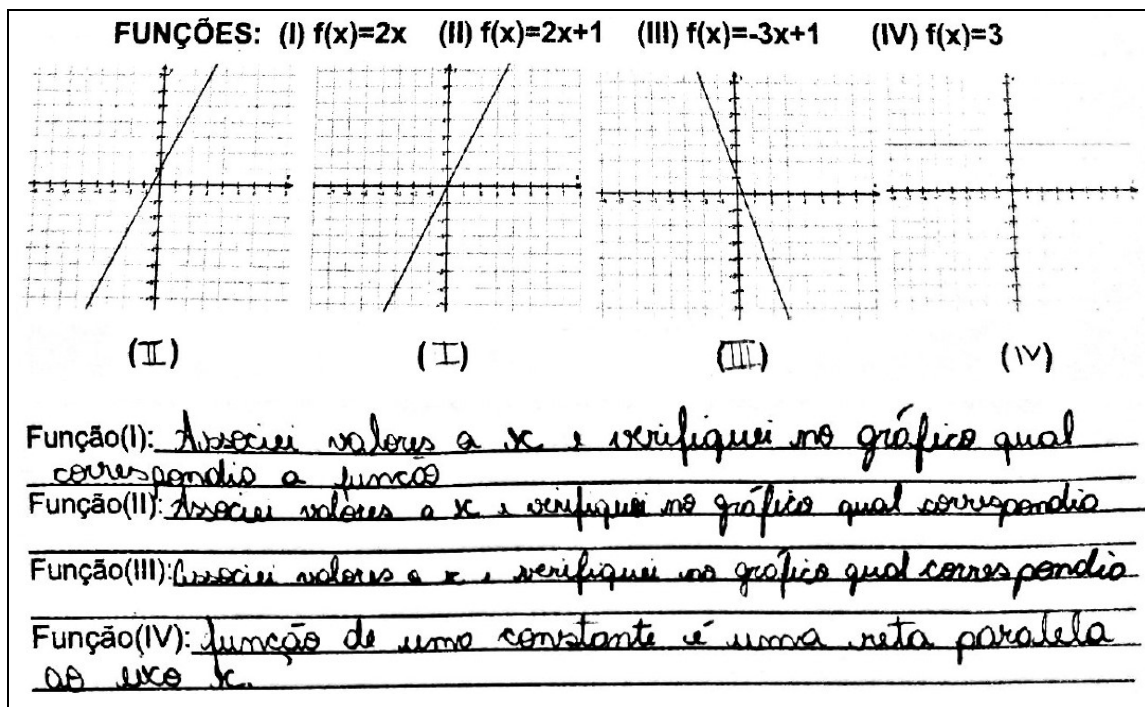 FUNÇÕES: (I) f(x)=2x (II) f(x)=2x+1 (III) f(x)=-3x+1 (IV) f(x)=3
(II) (I) (III) (IV)
Função(I): Associei valores a x e verifiquei no gráfico qual
correspondia a função
Função(II): Associei valores a x e verifiquei no gráfico qual correspondia
Função(III): Associei valores a x e verifiquei no gráfico qual correspondia
Função(IV): função de uma constante é uma reta paralela
ao eixo x.